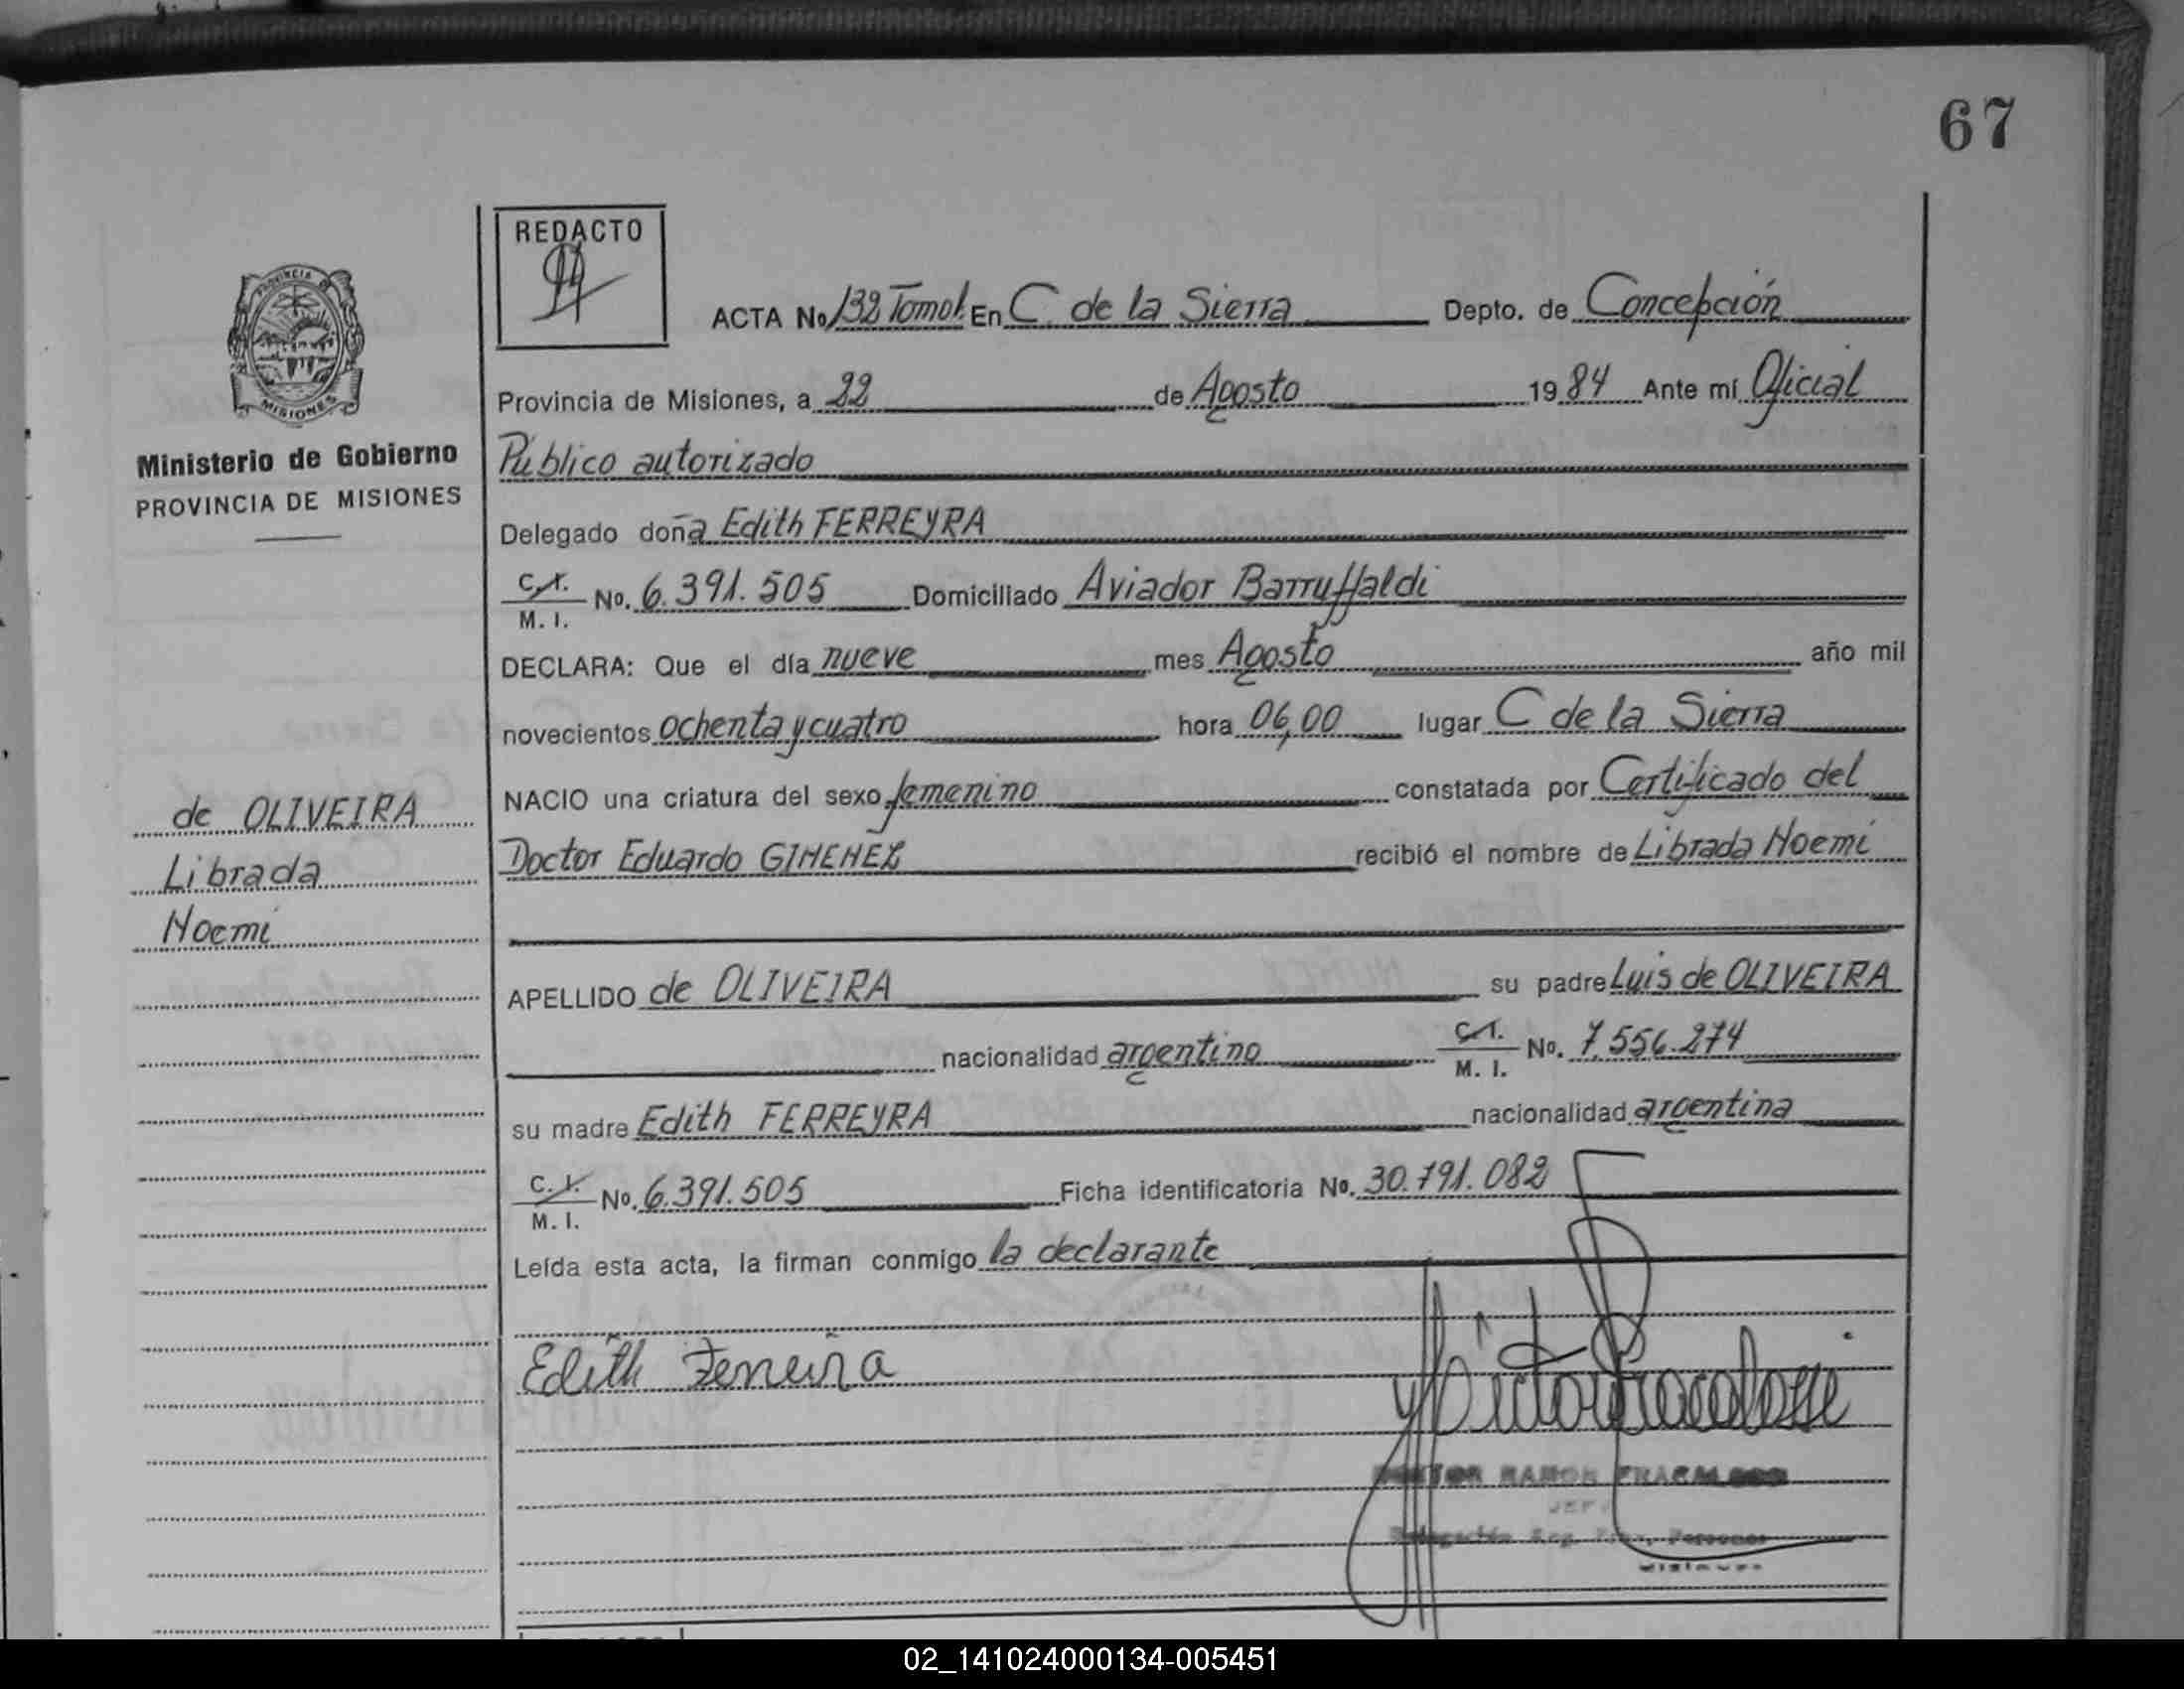 67
REDACTO
ACTA No. 132 Tomo I. En C. de la Sierra Depto. de Concepción
PROVINCIA
MISIONES
Provincia de Misiones, a 22 de Agosto 1984 Ante mí Oficial
Ministerio de Gobierno
PROVINCIA DE MISIONES
Público autorizado
Delegado doña Edith FERREYRA
C.I. M. I. No. 6.391.505 Domiciliado Aviador Barruffaldi
DECLARA: Que el día nueve mes Agosto año mil
novecientos ochenta y cuatro hora 06,00 lugar C de la Sierra
NACIO una criatura del sexo femenino constatada por Certificado del
Doctor Eduardo GIMENEZ recibió el nombre de Librada Noemi
de OLIVEIRA
Librada
Noemi
APELLIDO de OLIVEIRA su padre Luis de OLIVEIRA
nacionalidad argentino C.I. M. I. No. 7.556.274
su madre Edith FERREYRA nacionalidad argentina
C. I. M. I. No. 6.391.505 Ficha identificatoria No. 30.791.082
Leída esta acta, la firman conmigo la declarante
Edith Ferreira
RAMON
JEFE
Delegación Reg. Personas
Misiones
02_141024000134-005451